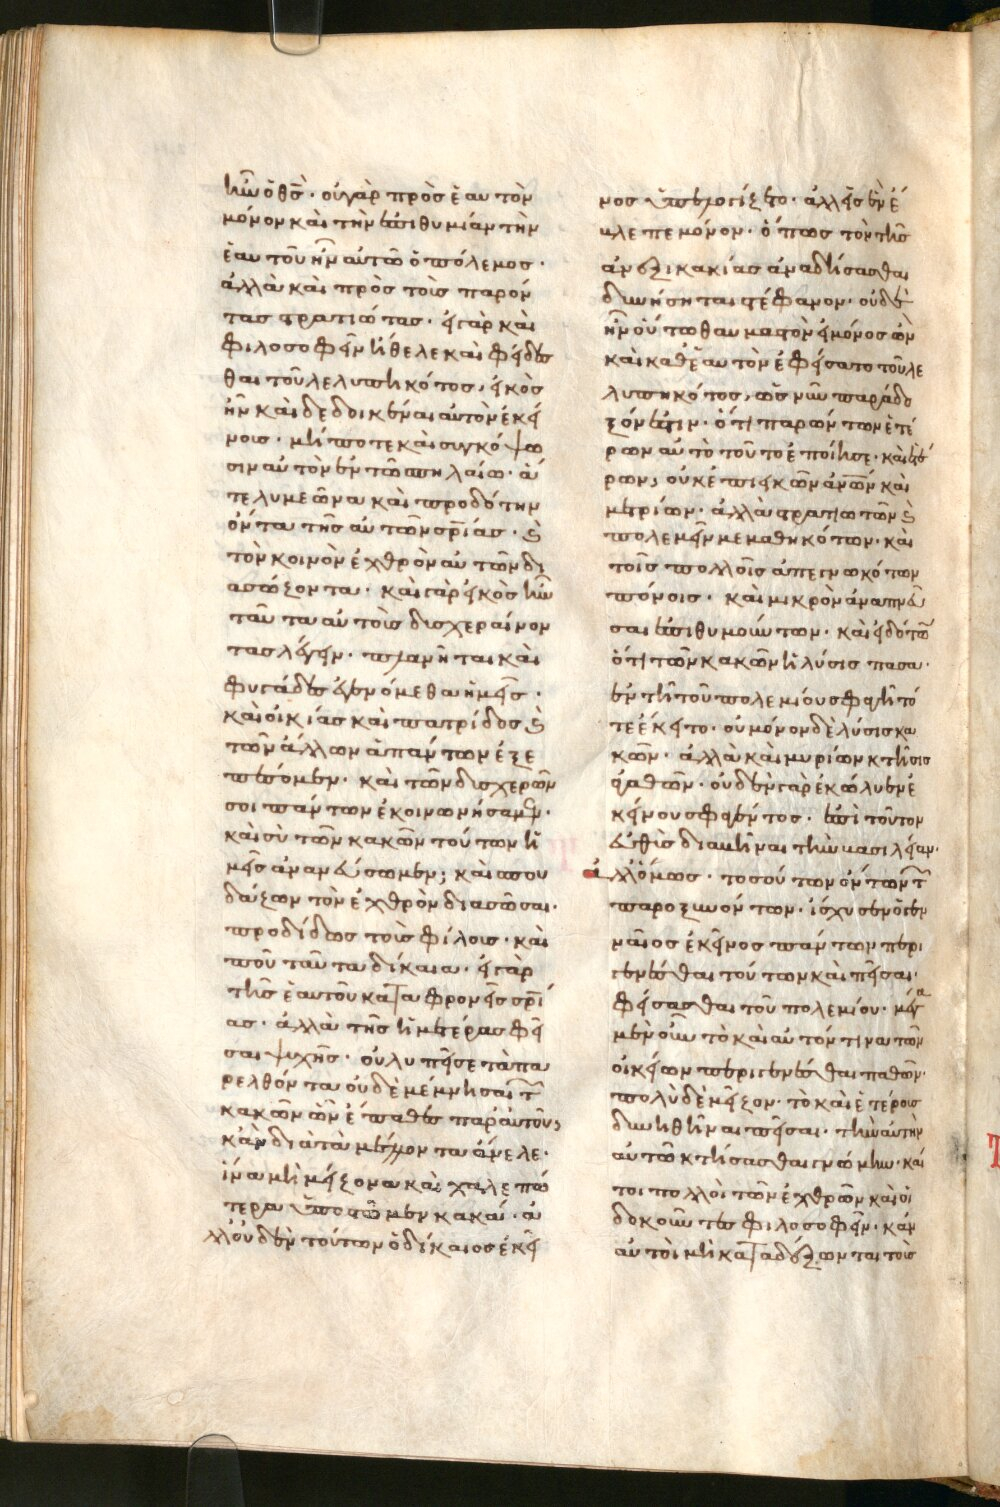 ἦν ὁ θς. οὐ γὰρ πρὸς ἑαυτὸν
μόνον καὶ τὴν ἐπιθυμίαν τὴν
ἑαυτοῦ ἦν αὐτῶ ὁ πόλεμος.
ἀλλὰ καὶ πρὸς τοὺς παρόν
τας στρατιώτας. εἰ γὰρ καὶ
φιλοσοφεῖν ἤθελε καὶ φείδεσ
θαι τοῦ λελυπηκότος, εἰκὸς
ἦν καὶ δεδοικέναι αὐτὸν ἐκεί
νοις. μήποτε καὶ συγκόψω
σιν αὐτὸν ἐν τῶ σπηλαίω. ἅ
τε λυμεῶνα καὶ προδότην
ὄντα τῆς αὐτῶν σρίας. ϗ
τὸν κοινὸν ἐχθρὸν αὐτῶν δι
ασώζοντα. καὶ γὰρ εἰκὸς ἦν
ταῦτα αὐτοὺς δυσχεραίνον
τας λέγειν. πλανῆται καὶ
φυγάδες ἐγενόμεθα ἡμεῖς.
καὶ οἰκίας καὶ πατρίδος ϗ
τῶν ἄλλων ἁπάντων ἐξε
πέσομεν. καὶ τῶν δυσχερῶν
σοι πάντων ἐκοινωνήσαμεν.
καὶ σὺ τῶν κακῶν τούτων ἡ
μᾶς
δάζων τὸν ἐχθρὸν διασῶσαι.
προδίδως τοὺς φίλους. καὶ
ποῦ ταῦτα δίκαια. εἰ γὰρ
τῆς ἑαυτοῦ καταφρονεῖς σρί
ας. ἀλλὰ τῆς ἡμετέρας φεῖ
σαι ψυχῆς. οὐ λυπεῖ σε τὰ πα
ρελθόντα οὐδὲ μέμνησαι τ
κακῶν ὧν ἔπαθες παρ' αὐτοῦ;
κἂν διὰ τὰ μέλλοντα ἄνελε.
ἵνα μὴ μείζονα καὶ χαλεπώ
τερα ὑπομένωμεν κακά. ἀ
λλ' οὐδὲν τούτων ὁ δίκαιος ἐκεῖ
νος ὑπελογίζετο. ἀλλ' εἰς ἓν ἔ
βλεπε μόνον. ὅπως τὸν τῆς
ἀνεξικακίας ἀναδήσασθαι
δυνήσηται στέφανον. οὐδὲ
ἦν οὕτω θαυμαστὸν εἰ μόνος ὢν
καὶ καθ' ἑαυτὸν ἐφείσατο τοῦ λε
λυπηκότος, ὡς νῦν παράδο
ξόν ἐστιν. ὅτι παρόντων ἑτέ
ρων αὐτὸ τοῦτο ἐποίησε. καὶ ἑτέ
ρων, οὐκ ἐπιεικῶν ἀνῶν καὶ
μετρίων. ἀλλὰ στρατιωτῶν ϗ
πολεμεῖν μεμαθηκότων. καὶ
τοῖς πολλοῖς ἀπεγνωκότων
πόνοις. καὶ μικρὸν ἀναπνεῦ
σαι ἐπιθυμούντων. καὶ εἰδότων
ὅτι τῶν κακῶν ἡ λύσις πᾶσα.
ἐν τῆ τοῦ πολεμίου σφαγῆ τό
τε ἔκειτο. οὐ μόνον δὲ λύσις κα
κῶν. ἀλλὰ καὶ μυρίων κτῆσις
ἀγαθῶν. οὐδὲν γὰρ ἐκώλυεν ἐ
κείνου σφαγέντος. ἐπὶ τοῦτον
εὐθὺς διαβῆναι τὴν βασιλείαν.
ἀλλ' ὅμως. τοσούτων ὄντων τ
παροξυνόντων. ἴσχυσεν ὁ γεν
ναῖος ἐκεῖνος πάντων περι
γενέσθαι τούτων καὶ πεῖσαι.
φείσασθαι τοῦ πολεμίου. μέγα
μὲν οὖν τὸ καὶ αὐτόν τινα τῶν
οἰκείων περιγενέσθαι παθῶν.
πολὺ δὲ μεῖζον. τὸ καὶ ἑτέρους
δυνηθῆναι πεῖσαι. τὴν αὐτὴν
αὐτῶ κτήσασθαι γνώμην. καί
τοι πολλοὶ τῶν ἐχθρῶν καὶ οἱ
δοκοῦντες φιλοσοφεῖν. κἂν
αὐτοὶ μὴ καταδέξωνται τοὺς